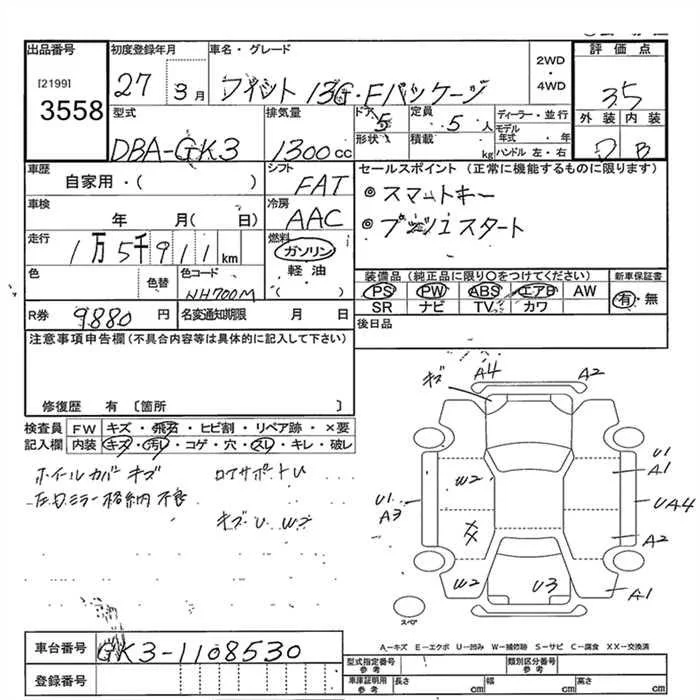 出品番号
[2199]
3558
初度登録年月
27 3月
車名・グレード
フィット 13G・Fパッケージ
2WD
・
4WD
評価点
3.5
外装 内装
B
型式
DBA-GK3
排気量
1300cc
ドア 5
形状
定員 5人
積載 kg
ディーラー・並行
モデル年式・年
ハンドル 左・右
車歴
自家用・( )
シフト
FAT
車検
年 月( 日)
冷房
AAC
走行
1万5千911km
燃料
ガソリン
軽油
( )
色
色替
色コード
NH700M
R券 9880円
名変通知期限 月 日
セールスポイント (正常に機能するものに限ります)
◎スマートキー
◎プッシュスタート
装備品(純正品に限り○をつけてください)
PS PW ABS エアB AW
SR ナビ TV カワ
新車保証書
有・無
後日品
注意事項申告欄(不具合内容等は具体的に記入して下さい)
修復歴 有 〔箇所 〕
検査員記入欄
FW キズ・飛石・ヒビ割・リペア跡・×要
内装 キズ・汚レ・コゲ・穴・スレ・キレ・破レ
ホイールカバーキズ
ロアサポートU
左ドアミラー格納不良
キズ・U W2
キズ
A4
A2
U1
A1
W2
U1
A3
UA4
A2
W2
U3
A1
スペア
A…キズ E…エクボ U…凹み W…補修跡 S…サビ C…腐食 XX…交換済
車台番号
GK3-1108530
登録番号
型式指定番号
参考
類別区分番号
参考
車庫証明用
参考
長さ cm
幅 cm
高さ cm